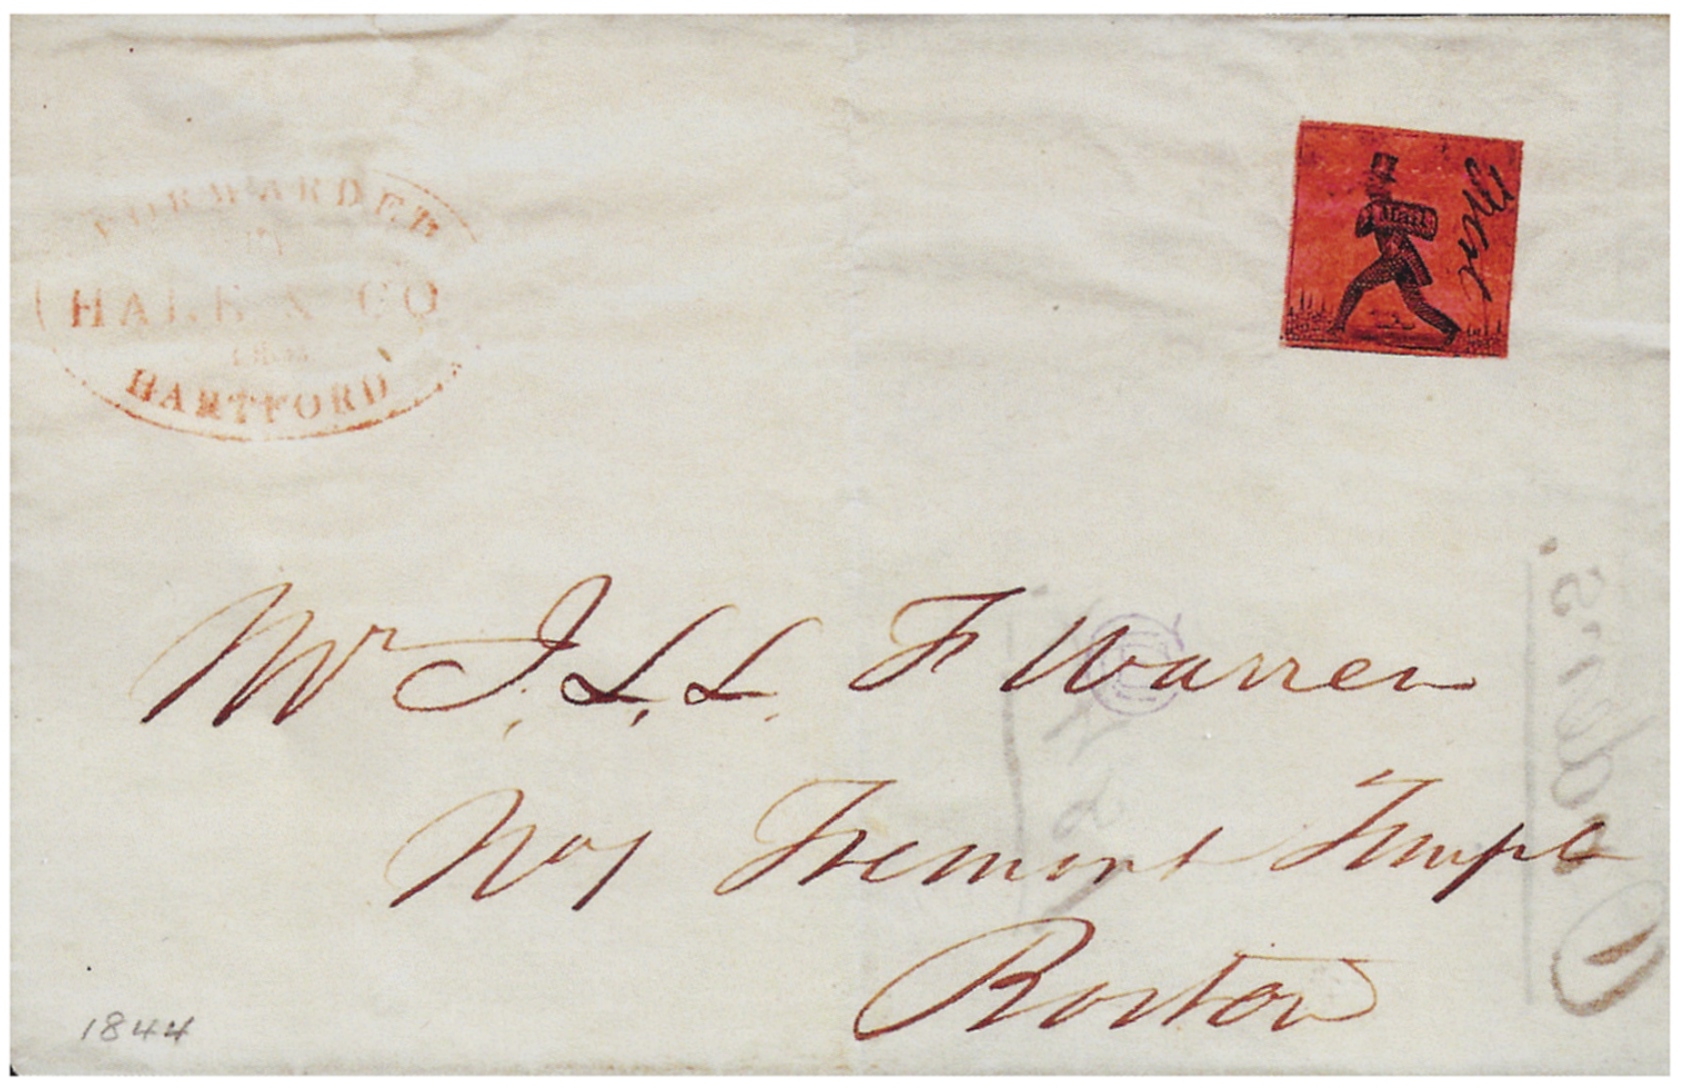 FORWARDED
HALE & CO
FROM
HARTFORD
Mail
Mr J. L. L. F Warren
No 1 Tremont Temple
Boston
1844